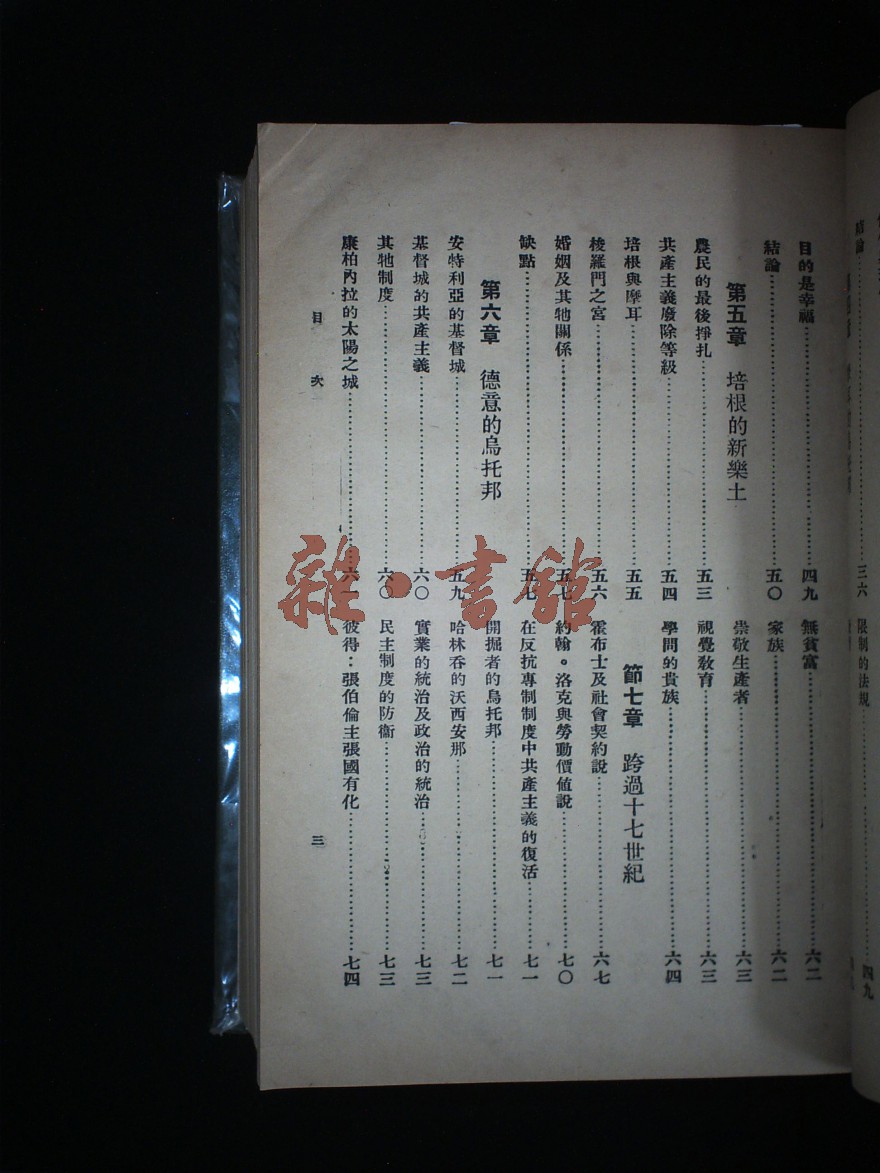 結論……三六
限制的法規……四九
目的是幸福……四九
結論……五〇
第五章 培根的新樂土
農民的最後掙扎……五三
共產主義廢除等級……五四
培根與摩耳……五五
梭羅門之宮……五六
婚姻及其牠關係……五七
缺點……五七
第六章 德意的烏托邦
安特利亞的基督城……五九
基督城的共產主義……六〇
其牠制度……六〇
康柏內拉的太陽之城……六一
無貧富……六二
家族……六二
崇敬生產者……六三
視覺教育……六三
學問的貴族……六四
節七章 跨過十七世紀
霍布士及社會契約說……六七
約翰。洛克與勞動價値說……七〇
在反抗專制制度中共產主義的復活……七一
開掘者的烏托邦……七一
哈林呑的沃西安那……七二
實業的統治及政治的統治……七三
民主制度的防衞……七三
彼得：張伯倫主張國有化……七四
目次 三
雜·書館